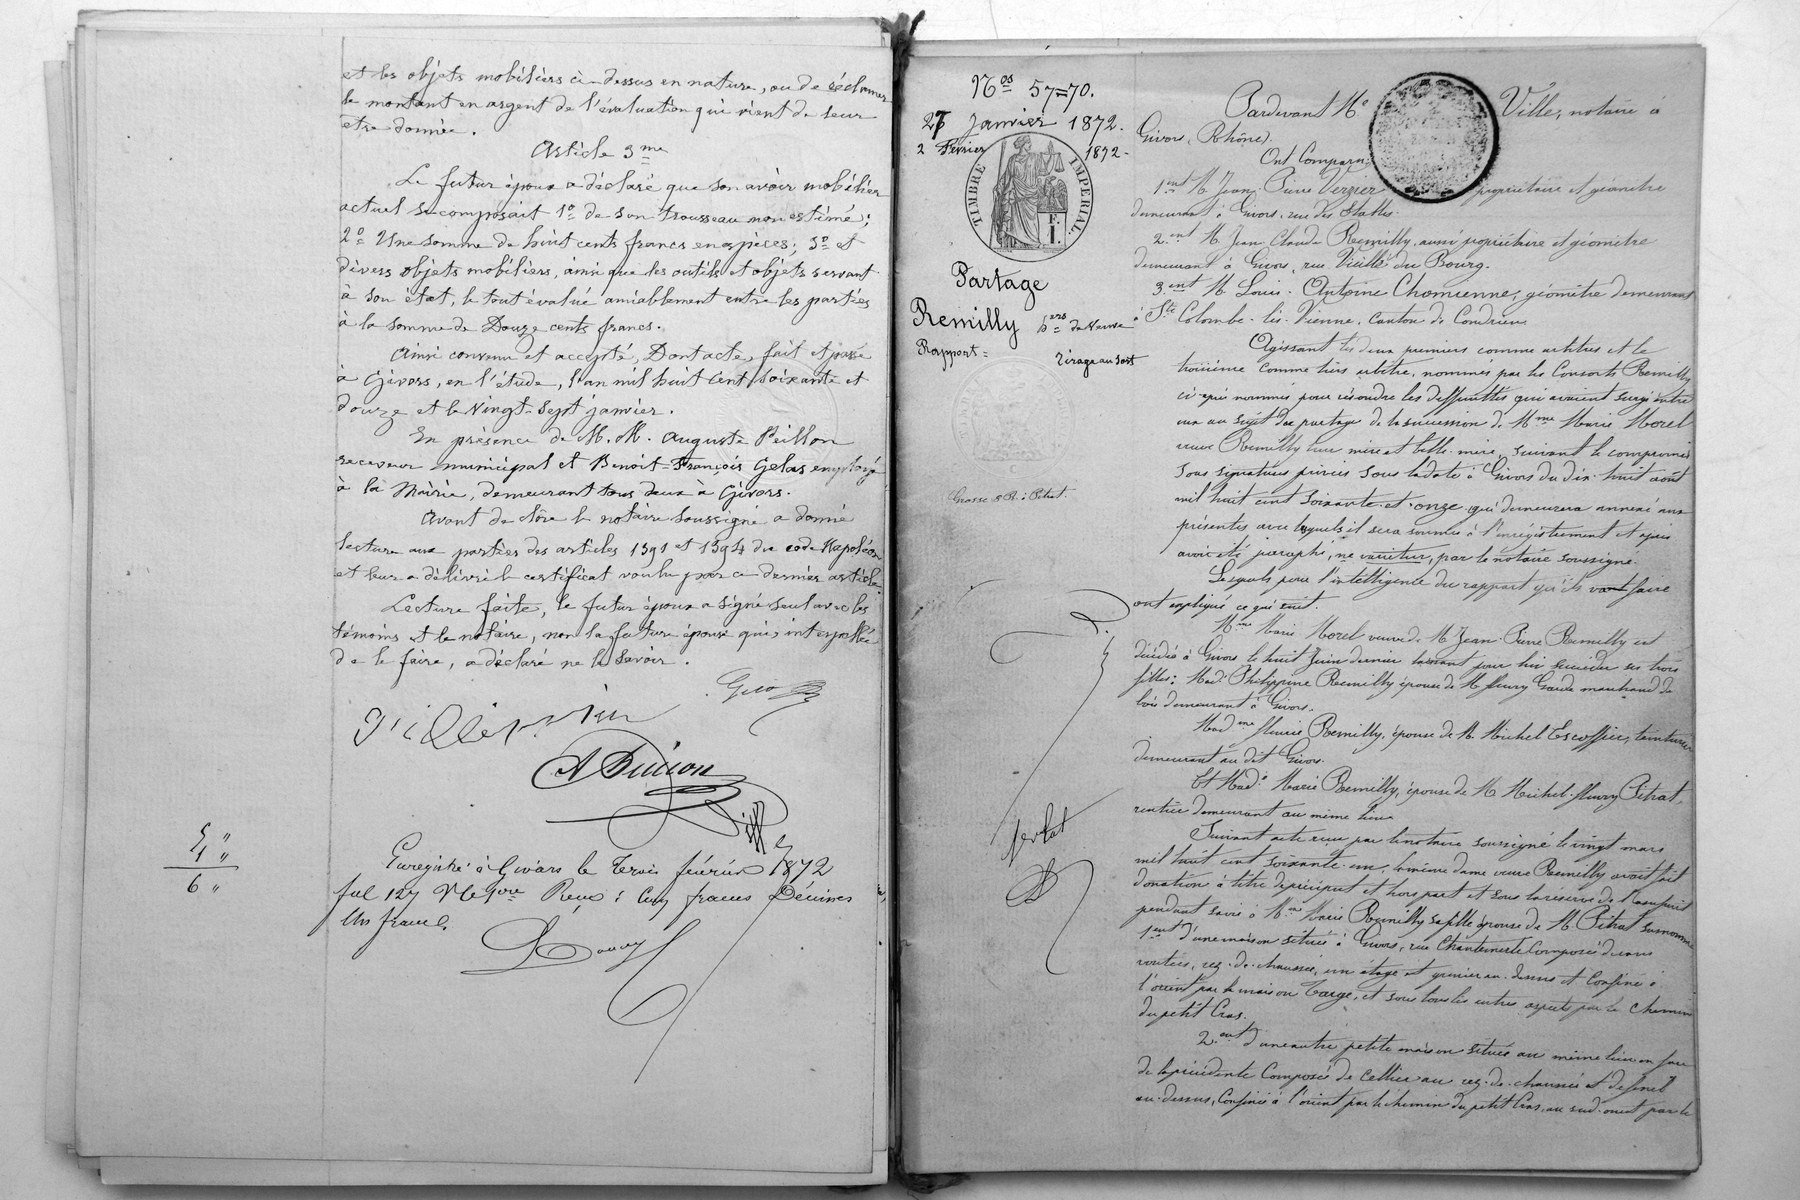 et les objets mobiliers ci-dessus en nature, ou de réclamer
le montant en argent de l'évaluation qui vient de leur
etre donnée.
Article 3me
Le futur époux a déclaré que son avoir mobilier
actuel se composait 1o de son trousseau non estimé;
2o Une somme de huit cents francs en espèces; 3o et
divers objets mobiliers, ainsi que les outils et objets servant
à son état, le tout évalué amiablement entre les parties
à la somme de Douze cents francs.
Ainsi convenu et accepté, Dont acte, fait et passé
à Givors, en l'étude, l'an mil huit cent soixante et
douze et le vingt-sept janvier.
En présence de M.M. Auguste Peillon
receveur municipal et Benoit-François Gelas employé
à la Mairie, demeurant tous deux à Givors.
Avant de clore le notaire soussigné a donné
lecture aux parties des articles 1391 et 1394 du code Napoléon
et leur a délivré le certificat voulu par ce dernier article
Lecture faite, le futur époux a signé seul avec les
témoins et le notaire, non la future épouse qui, interpellée
de le faire, a déclaré ne le savoir.
5 "
1 "
6 "
Enregistré à Givors le Trois février 1872
fol 127 Reçu: Cinq francs Décimes
Un franc.
Nos 57=70.
27 Janvier 1872.
2 Fevrier 1872-
TIMBRE IMPERIAL
F.
I.
Partage
Remilly
Rapport= tirage au sort
Grosse à M. Pitrat.
Pardevant Me Ville, notaire à
Givors (Rhône).
Ont Comparu:
1ent M. Jean Pierre Verzier propriétaire et géomètre
demeurant à Givors, rue des
2ent M. Jean Claude Remilly, aussi propriétaire et géomètre
demeurant à Givors, rue Vieille du Bourg.
3ent M. Louis-Antoine Chomienne, géomètre demeurant
à Ste Colombe-lès-Vienne, canton de Condrieu
Agissant les deux premiers comme arbitres et le
troisième comme tiers arbitre, nommés par les Consorts Remilly
ci-après nommés pour résoudre les difficultés qui avaient surgi entre
eux au sujet du partage de la succession de Mme Marie Morel
veuve Remilly leur mère et belle-mère, suivant le compromis
sous signatures privées sous la date à Givors du dix-huit août
mil huit cent soixante-et-onze qui demeurera annexé aux
présentes avec lesquels il sera soumis à l'enregistrement et après
avoir été paraphé, ne varietur, par le notaire soussigné.
Lesquels pour l'intelligence du rapport qu'ils vont faire
ont expliqué ce qui suit.
Mme Marie Morel veuve de M. Jean-Pierre Remilly est
décédée à Givors le huit Juin dernier laissant pour lui succéder ses trois
filles: Made Philippine Remilly épouse de M. fleury Garde marchand de
bois demeurant à Givors.
Madme fleurie Remilly, épouse de M. Michel Escoffier, teinturier
demeurant au dit Givors.
Et Made Marie Remilly, épouse de M. Michel-fleury Pitrat,
rentier demeurant au même lieu.
Suivant acte reçu par le notaire soussigné le vingt mars
mil huit cent soixante-un, la même dame veuve Remilly avait fait
donation à titre de préciput et hors part et sous la réserve de l'usufruit
pendant sa vie à Me Marie Remilly sa fille épouse de M. Pitrat susnommé
1ent d'une maison située à Givors, rue Chantemerle composée de caves
voutées, rez-de-chaussée, un étage et grenier au-dessus et confinée à
l'orient par la maison Targe, et sous tous les autres aspects par le chemin
du petit Cras.
2ent d'une autre petite maison située au même lieu en face
de la précédente composée de cellier au rez-de-chaussée et de fenil
au-dessus, confinée à l'orient par le chemin du petit Cras, au sud-ouest par le